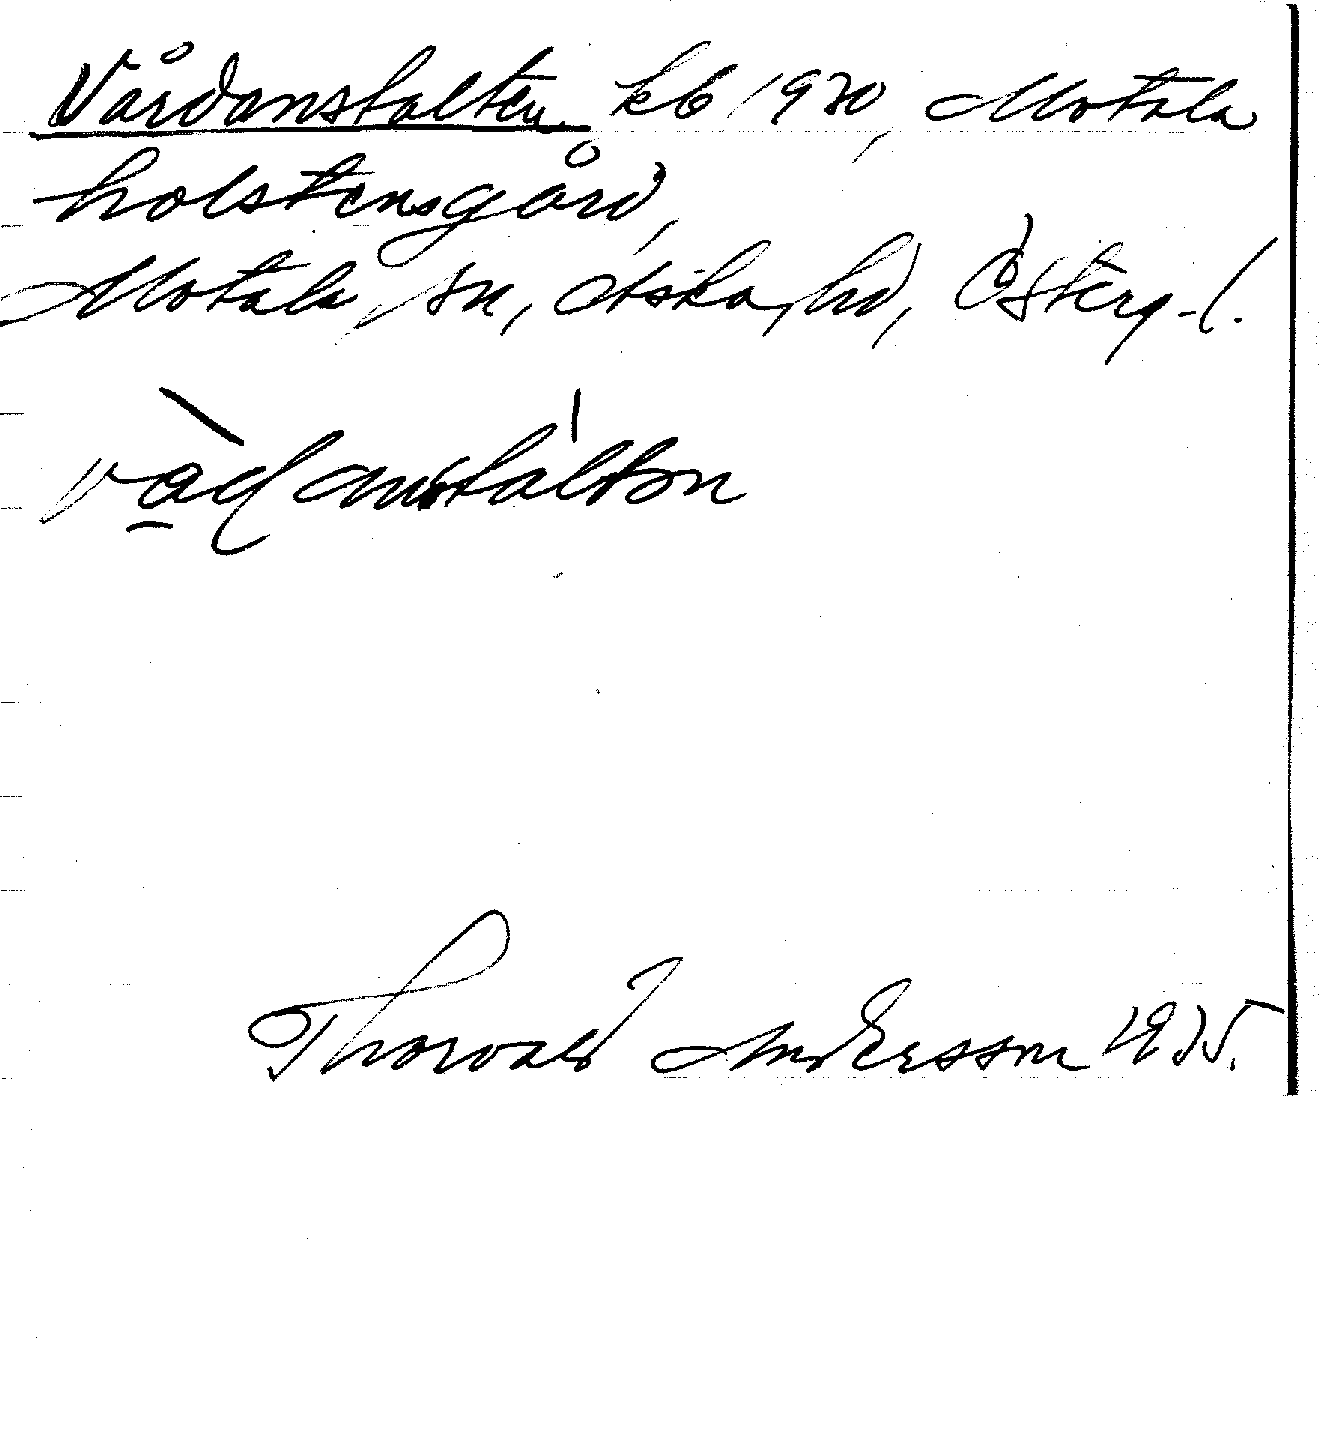 Vårdanstalten kb 1930, Motala
holstensgård,
Motala sn, Aska hd, Österg. l.
vàd anstalton
Thorvald Andersson 1935.